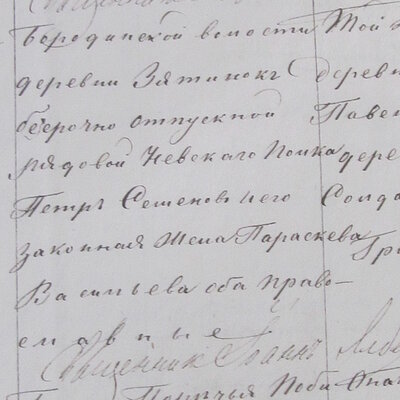 Бородинской волости Той
деревни Зятинокъ дерев
безсрочно отпускной Павел
рядовой Невскаго Полка дере
Петръ Семеновъ и его Солда
законная Жена Параскева Гри
Васильева оба право-
славные
Священник Іоаннъ